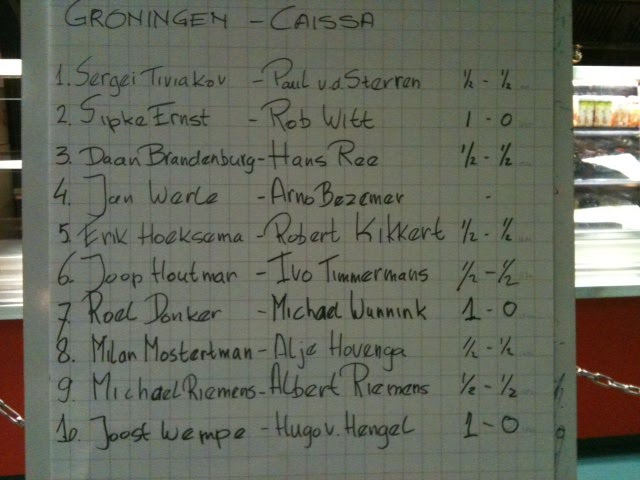 GRONINGEN - CAISSA
1. Sergei Tiviakov - Paul v.d Sterren ½ - ½
2. Sipke Ernst - Rob Witt 1 - 0
3. Daan Brandenburg - Hans Ree ½ - ½
4. Jan Werle - Arno Bezemer -
5. Erik Hoeksema - Robert Kikkert ½ - ½
6. Joop Houtman - Ivo Timmermans ½ - ½
7. Roel Donker - Michael Wunnink 1 - 0
8. Milan Mostertman - Alje Hovenga ½ - ½
9. Michael Riemens - Albert Riemens ½ - ½
10. Joost Wempe - Hugo v. Hengel 1 - 0